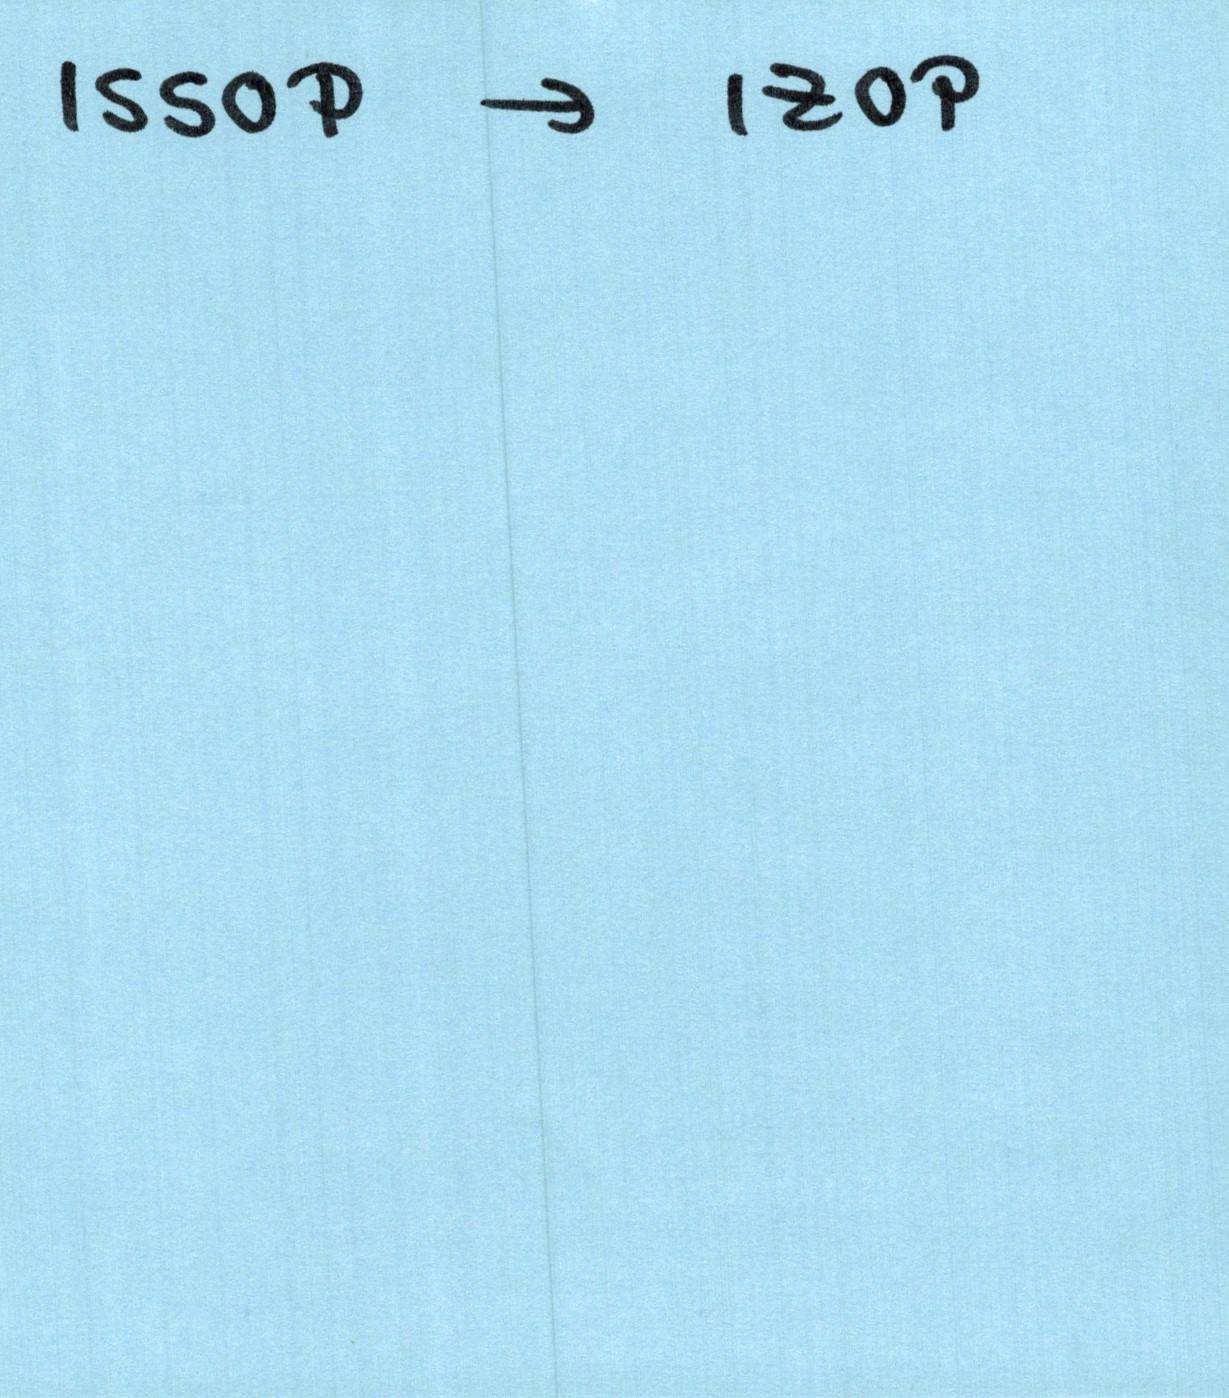 ISSOP → IZOP